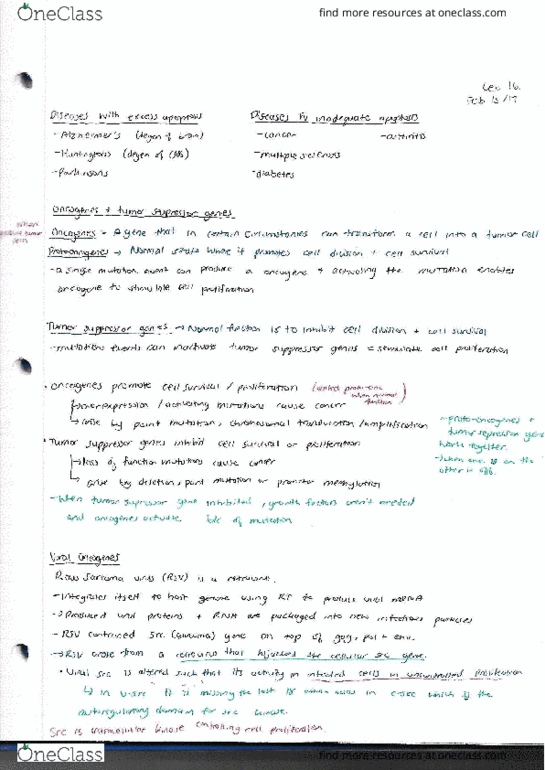 OneClass
find more resources at oneclass.com
Lec 16.
Feb 13/17
Diseases with excess apoptosis
Diseases by inadequate apoptosis
- Alzheimer's (degen of brain)
- cancer
- arthritis
- Huntingtons (degen of CNS)
- multiple sclerosis
- Parkinsons
- diabetes
Oncogenes + tumor suppressor genes
Oncogenes - A gene that in certain circumstances can transform a cell into a tumor cell
Protooncogenes → Normal state where it promotes cell division + cell survival
- a single mutation event can produce a oncogene + activating the mutation enables
oncogene to stimulate cell proliferation
Tumor suppressor genes → Normal function is to inhibit cell division + cell survival
- mutations events can inactivate tumor suppressor genes = stimulate cell proliferation
• oncogenes promote cell survival / proliferation
when normal
function
overexpression / activating mutations cause cancer
arise by point mutation, chromosomal translocation / amplification
- proto-oncogenes +
tumor repression gene
work together.
- when one is on the
other is off.
• Tumor suppressor genes inhibit cell survival or proliferation
loss of function mutations cause cancer
arise by deletion, point mutation or promoter methylation
- when tumor supressor gene inhibited, growth factors aren't needed
and oncogenes activate. of mutation
Viral Oncogenes
Rous Sarcoma virus (RSV) is a retrovirus.
- Integrates itself to host genome using RT to produce viral mRNA
→ Produced viral proteins + RNA are packaged into new infectious particles
- RSV contained src (sarcoma) gene on top of gag, pol + env.
→ RSV arose from a retrovirus that hijacked the cellular src gene.
• Viral src is altered such that its activity in infected cells in uncontrolled proliferation
↳ in v-src it is missing the last 18 amino acids in c-src which is the
autoregulatory domain for src kinase.
Src is kinase controlling cell proliferation.
OneClass
find more resources at oneclass.com